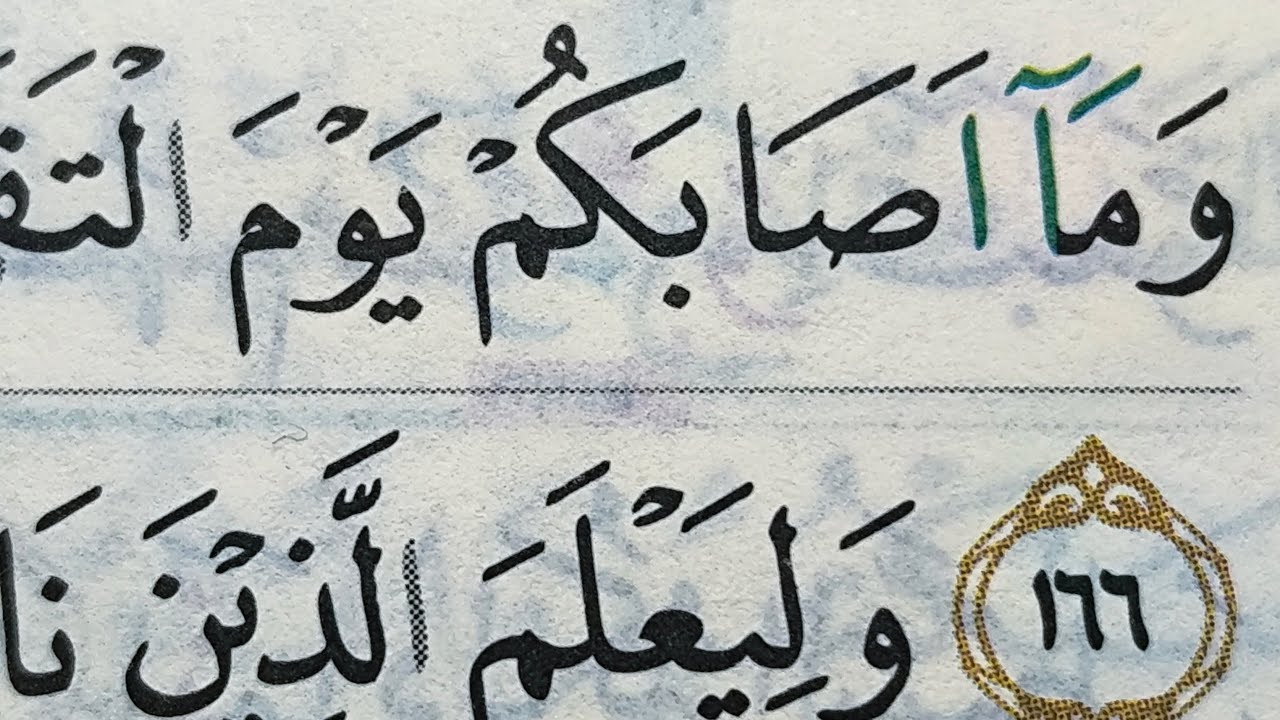 وَمَآ اَصَابَكُمْ يَوْمَ الْتَقَ
١٦٦ وَلِيَعْلَمَ الَّذِيْنَ نَا